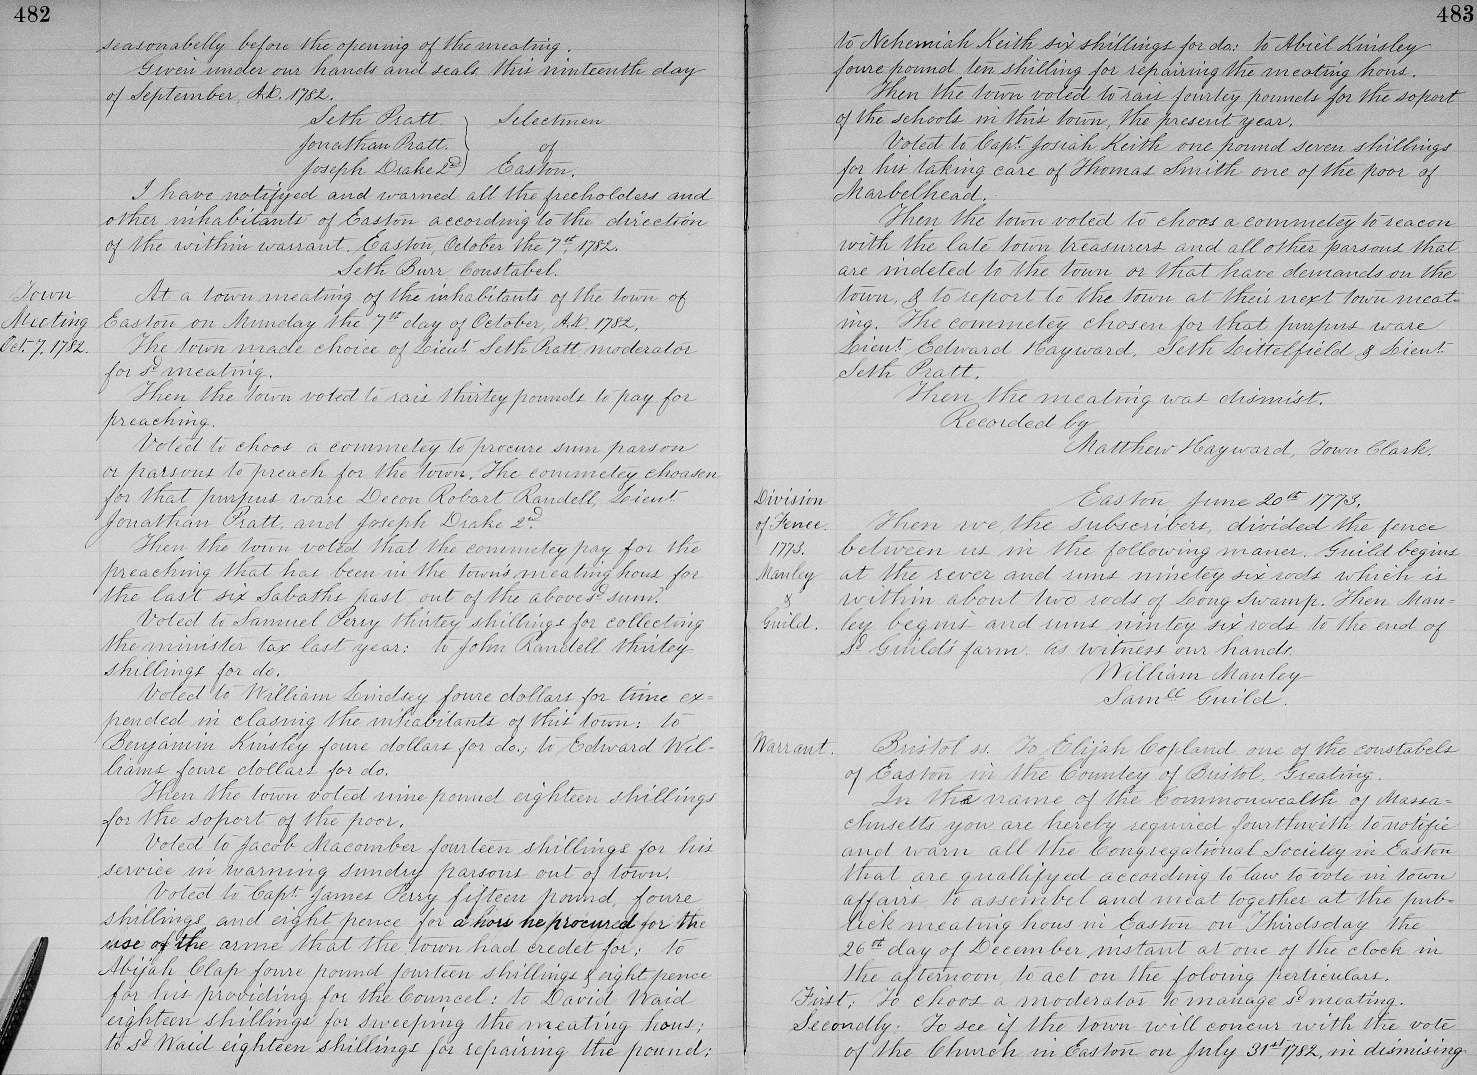 482
seasonabelly before the opening of the meating.
Given under our hands and seals this ninteenth day
of September, A.D. 1782.
Seth Pratt } Selectmen
Jonathan Pratt. } of
Joseph Drake 2d } Easton.
I have notifyed and warned all the freeholders and
other inhabitants of Easton according to the direction
of the within warrant, Easton, October the 7th, 1782.
Seth Burr Constabel.
Town
Meeting
Oct. 7, 1782.
At a town meating of the inhabitants of the town of
Easton on Munday the 7th day of October, A.D. 1782.
The town made choice of Lieut. Seth Pratt moderator
for sd meating.
Then the town voted to rais thirtey pounds to pay for
preaching.
Voted to choos a commetey to procure sum parson
or parsons to preach for the town. The commetey choasen
for that purpus ware Decon Robart Randell, Lieut
Jonathan Pratt, and Joseph Drake 2nd
Then the town voted that the commetey pay for the
preaching that has been in the town's meating hous for
the last six Sabaths past out of the above sd sum.
Voted to Samuel Perry thirtey shillings for collecting
the minister tax last year: to John Randell thirtey
shillings for do.
Voted to William Lindsey foure dollars for time ex=
pended in clasing the inhabitants of this town: to
Benjamin Kinsley foure dollars for do.; to Edward Wil-
liams foure dollars for do.
Then the town voted nine pound eighteen shillings
for the soport of the poor.
Voted to Jacob Macomber fourteen shillings for his
service in warning sundry parsons out of town.
Voted to Capt. James Perry fifteen pound, foure
shillings and eight pence for a hors he procured for the
use of the arme that the town had credet for: to
Abijah Clap foure pound fourteen shillings & eight pence
for his providing for the Councel: to David Waid
eighteen shillings for sweeping the meating hous;
to sd Waid eighteen shillings for repairing the pound:
483
to Nehemiah Keith six shillings for do: to Abiel Kinsley
foure pound ten shilling for repairing the meating hous.
Then the town voted to rais fourtey pounds for the soport
of the schools in this town, the present year.
Voted to Capt. Josiah Keith one pound seven shillings
for his taking care of Thomas Smith one of the poor of
Marbelhead.
Then the town voted to choos a commetey to reacon
with the late town treasurers and all other parsons that
are indeted to the town or that have demands on the
town, & to report to the town at their next town meat-
ing. The commetey chosen for that purpus ware
Lieut. Edward Hayward, Seth Littelfield & Lieut.
Seth Pratt.
Then the meating was dismist.
Recorded by
Matthew Hayward, Town Clark.
Division
of Fence.
1773.
Manley
&
Guild.
Easton June 20th 1773.
Then we, the subscribers, divided the fence
between us in the following maner. Guild begins
at the rever and runs ninetey six rods which is
within about two rods of Long Swamp. Then Man=
ley begins and runs nintey six rods to the end of
sd Guild's farm. As witness our hands.
William Manley
Samll Guild.
Warrant.
Bristol ss. To Elijah Copland one of the constabels
of Easton in the Countey of Bristol, Greating.
In the name of the Commonwealth of Massa=
chusetts you are hereby required fourthwith to notifie
and warn all the Congregational Societey in Easton
that are quallifyed according to law to vote in town
affairs to assembel and meat together at the pub-
lick meating hous in Easton on Thirdsday the
26th day of December instant at one of the clock in
the afternoon, to act on the foloing perticulars.
First; To choos a moderator to manage sd meating.
Secondly: To see if the town will concur with the vote
of the Church in Easton on July 31st 1782, in dismising